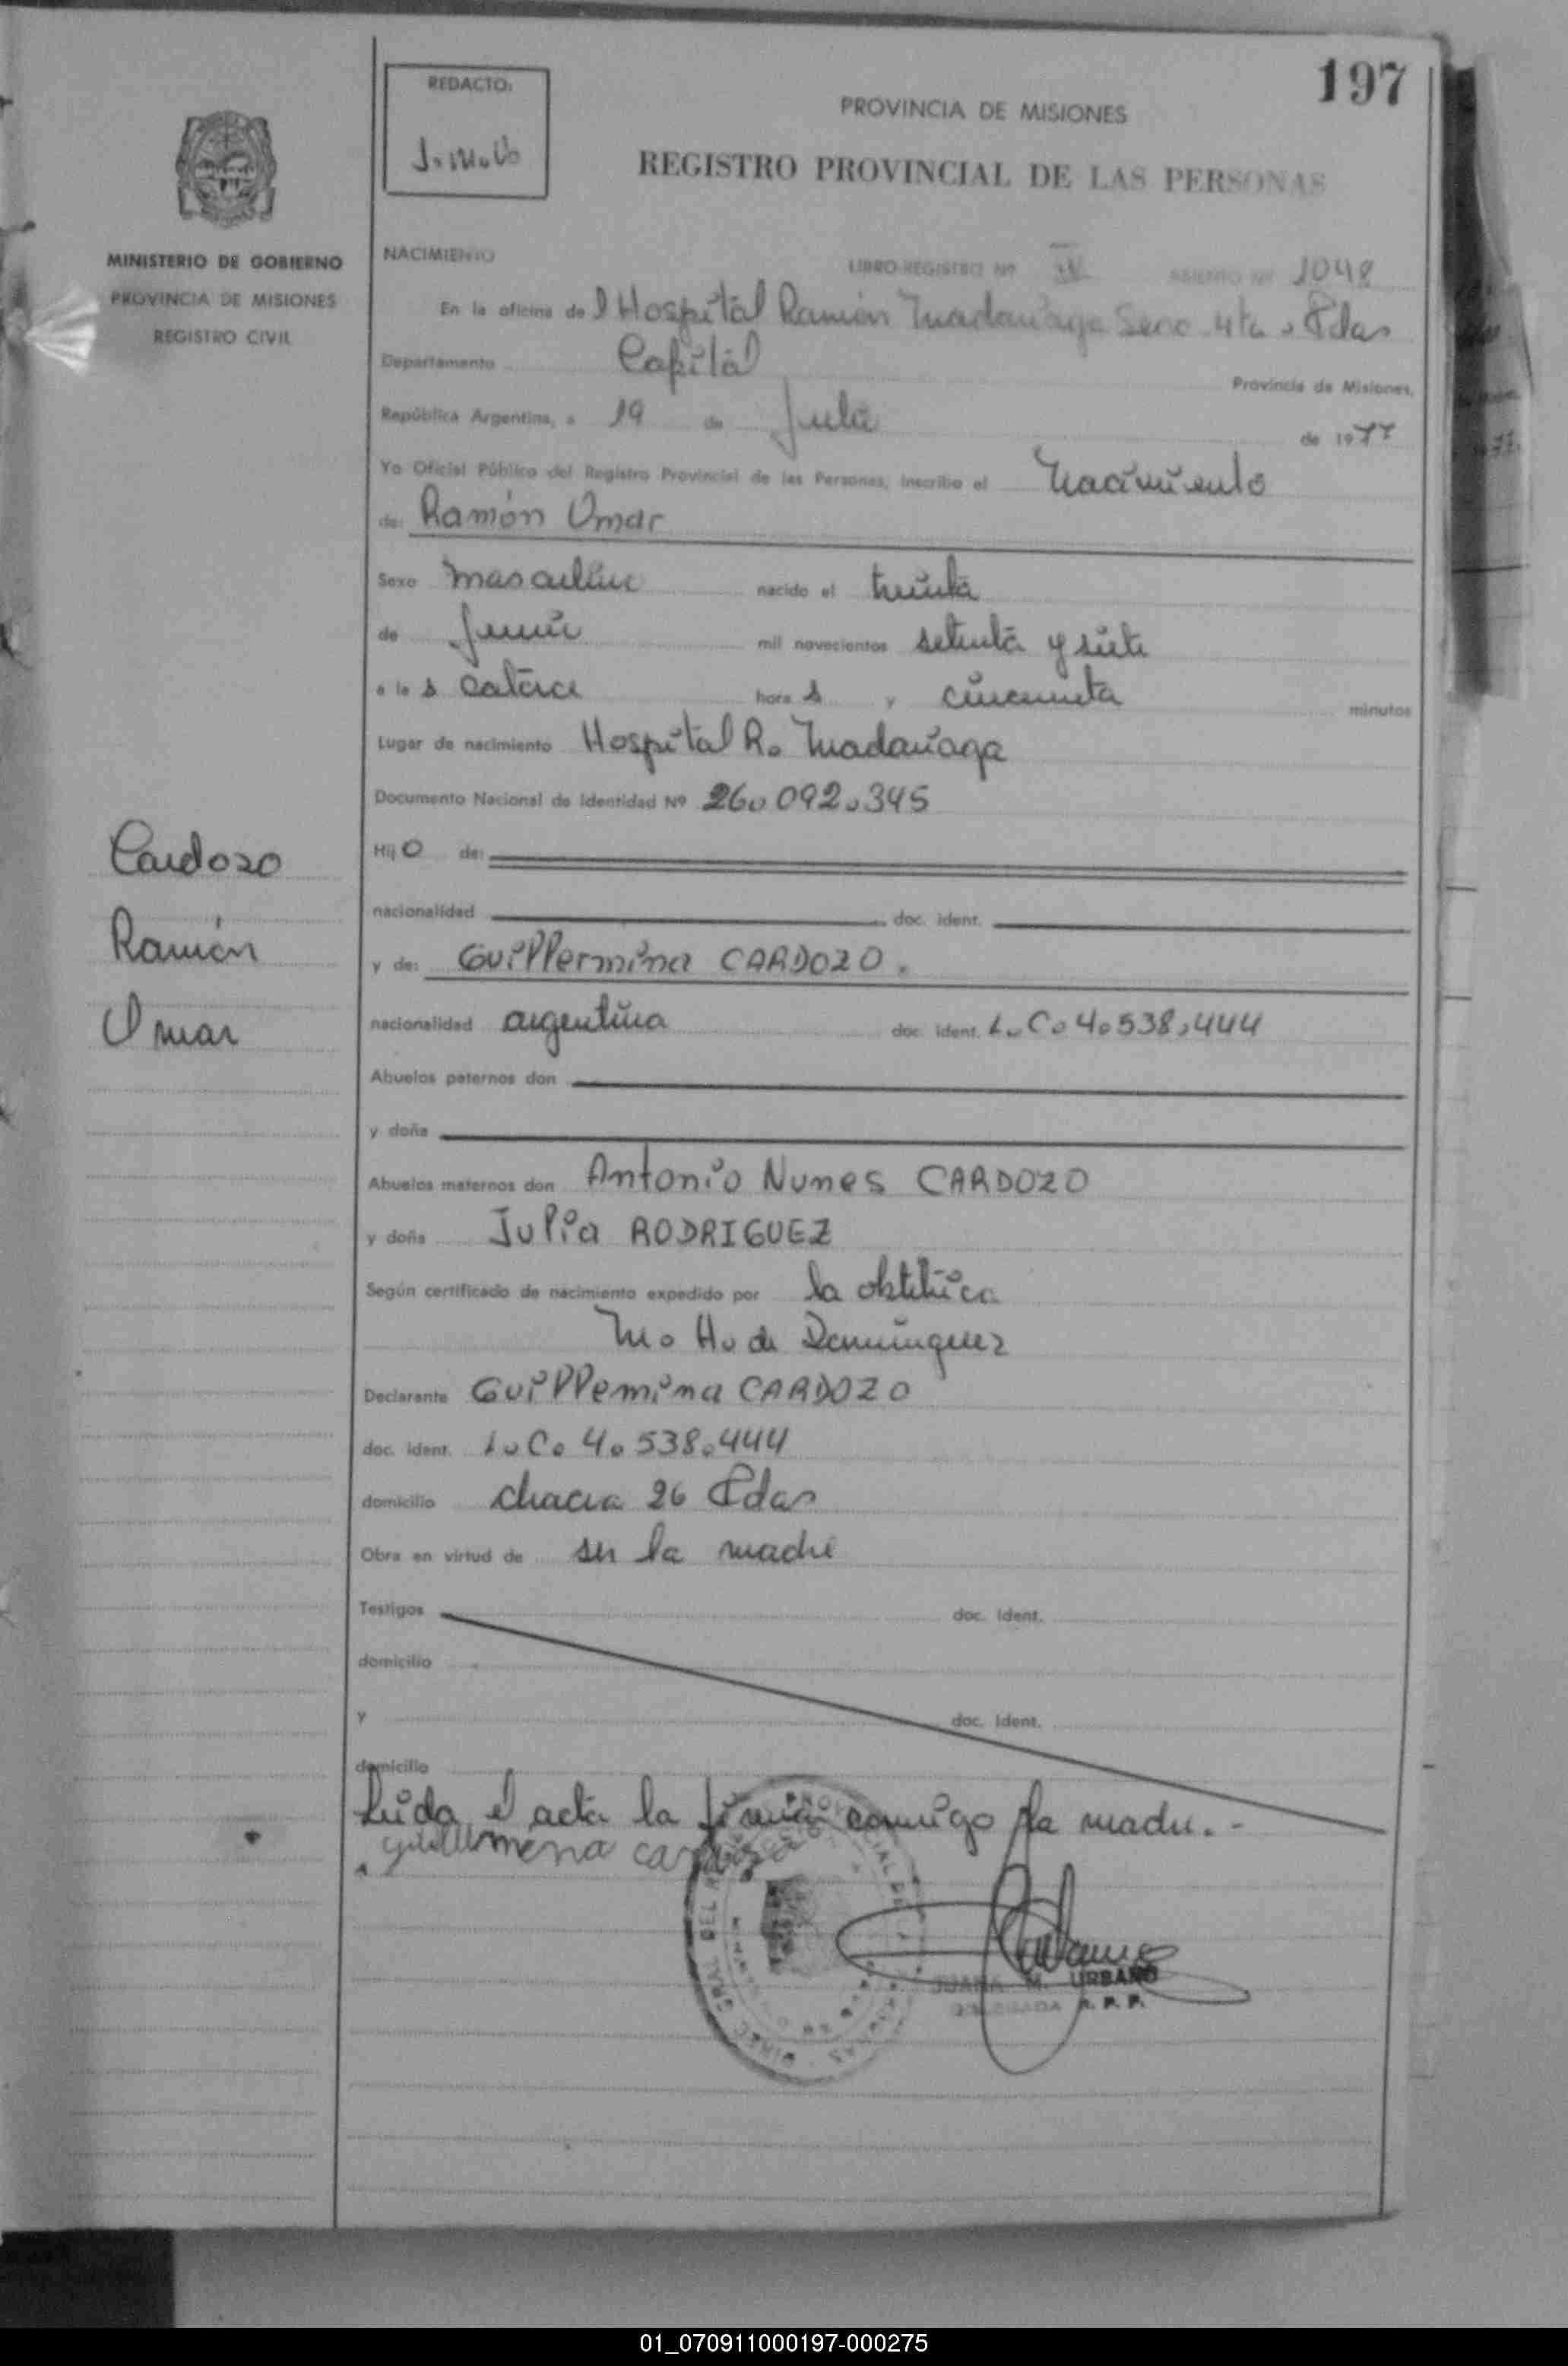 197
REDACTO:
J.M.U
PROVINCIA DE MISIONES
REGISTRO PROVINCIAL DE LAS PERSONAS
MINISTERIO DE GOBIERNO
PROVINCIA DE MISIONES
REGISTRO CIVIL
NACIMIENTO
LIBRO REGISTRO Nº IV ASIENTO Nº 1048
En la oficina del Hospital Ramón Madariaga Secc. 4ta. Pdas
Departamento Capital Provincia de Misiones,
República Argentina, a 19 de Julio de 1977
Yo Oficial Público del Registro Provincial de las Personas, inscribo el Nacimiento
de: Ramón Omar
Sexo masculino nacido el treinta
de Junio mil novecientos setenta y siete
a las catorce horas y cincuenta minutos
Lugar de nacimiento Hospital R. Madariaga
Documento Nacional de Identidad Nº 26.092.345
Hijo de:
nacionalidad doc. ident.
y de: Guillermina CARDOZO.
nacionalidad argentina doc. ident. L.C. 4.538.444
Abuelos paternos don
y doña
Abuelos maternos don Antonio Nunes CARDOZO
y doña Julia RODRIGUEZ
Según certificado de nacimiento expedido por la obstétrica
M. H. de Dominguez
Declarante Guillemina CARDOZO
doc. ident. L.C. 4.538.444
domicilio chacra 26 Pdas
Obra en virtud de ser la madre
Testigos doc. ident.
domicilio
y doc. ident.
domicilio
Leída el acta la firma conmigo la madre.-
JUANA M. URBANO
DELEGADA R. P. P.
Cardozo
Ramón
Omar
01_070911000197-000275